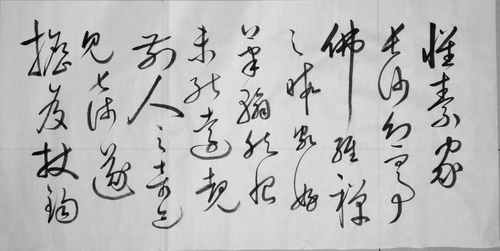 懷素家
長沙幼而事
佛經禪
之暇頗好
筆翰然恨
未能遠覩
前人之奇迹
見甚淺遂
擔笈杖錫